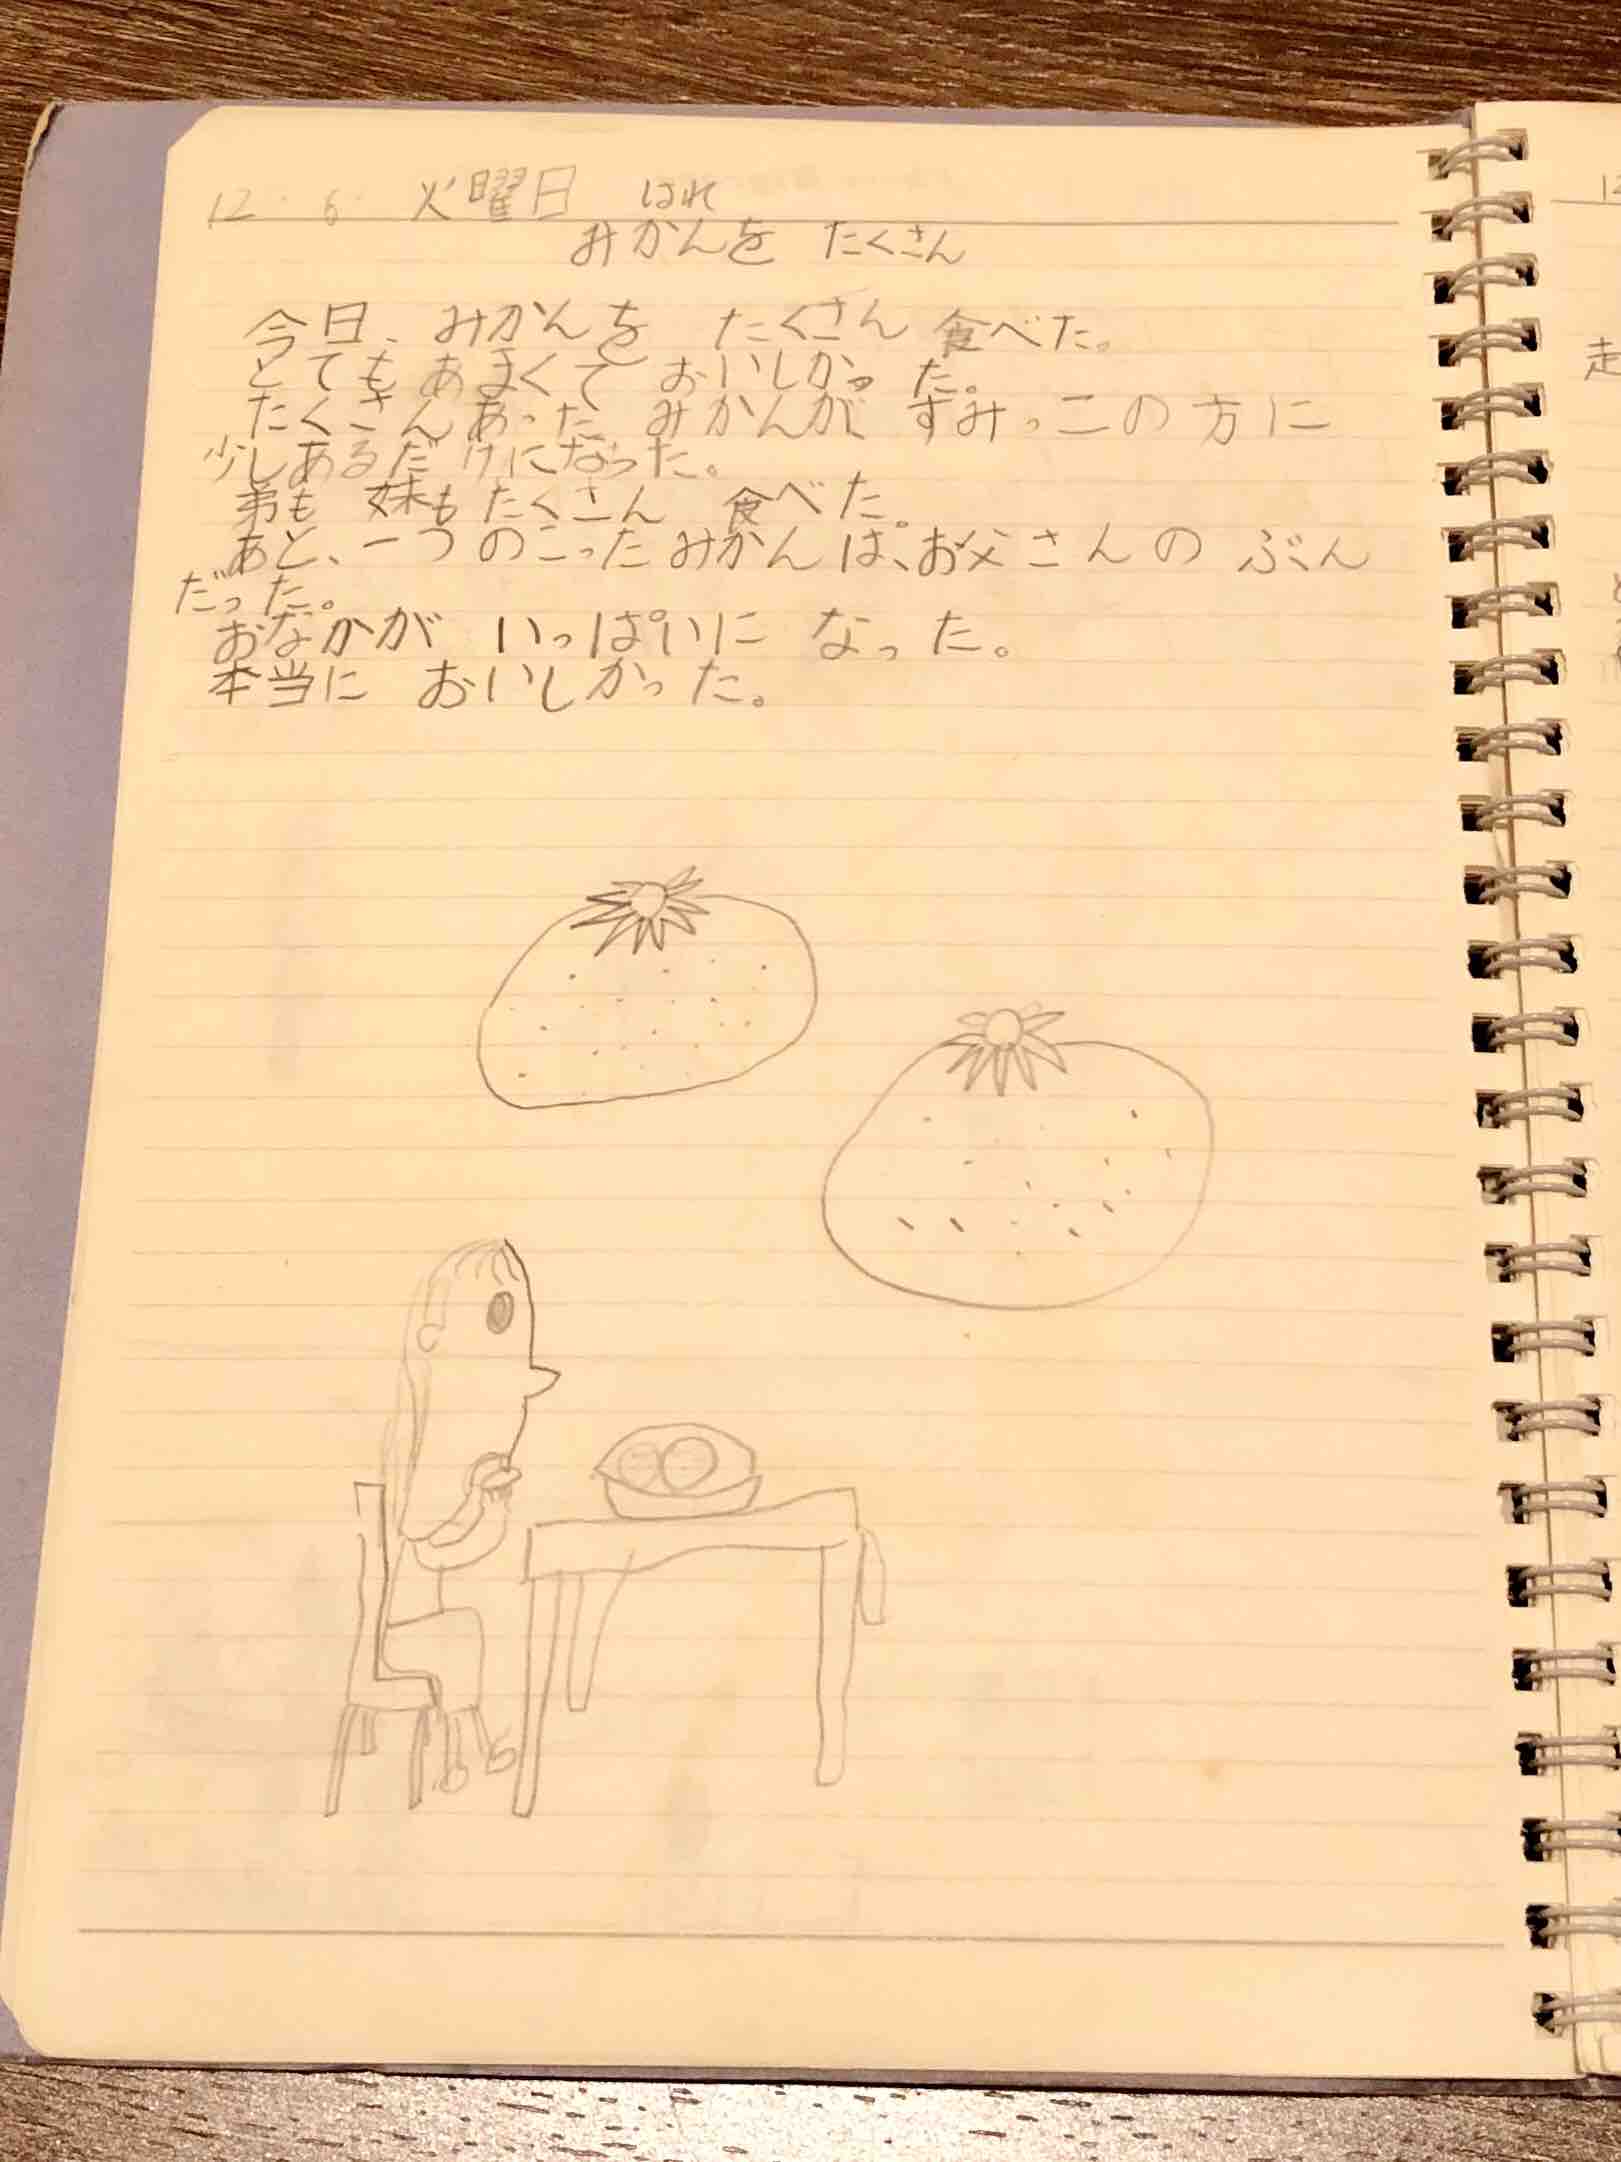 12・6・ 火曜日 はれ
みかんを たくさん
今日、みかんを たくさん 食べた。
とてもあまくて おいしかった。
たくさんあった みかんが すみっこの方に
少しあるだけになった。
弟も 妹もたくさん 食べた。
あと、一つのこったみかんは、お父さんの ぶん
だった。
おなかが いっぱいに なった。
本当に おいしかった。
走